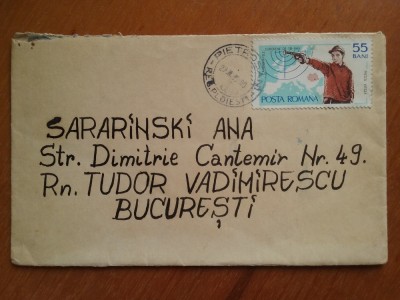 55
BANI
POSTA ROMANA
SARARINSKI ANA
Str. Dimitrie Cantemir Nr. 49.
Rn. TUDOR VADIMIRESCU
BUCUREȘTI